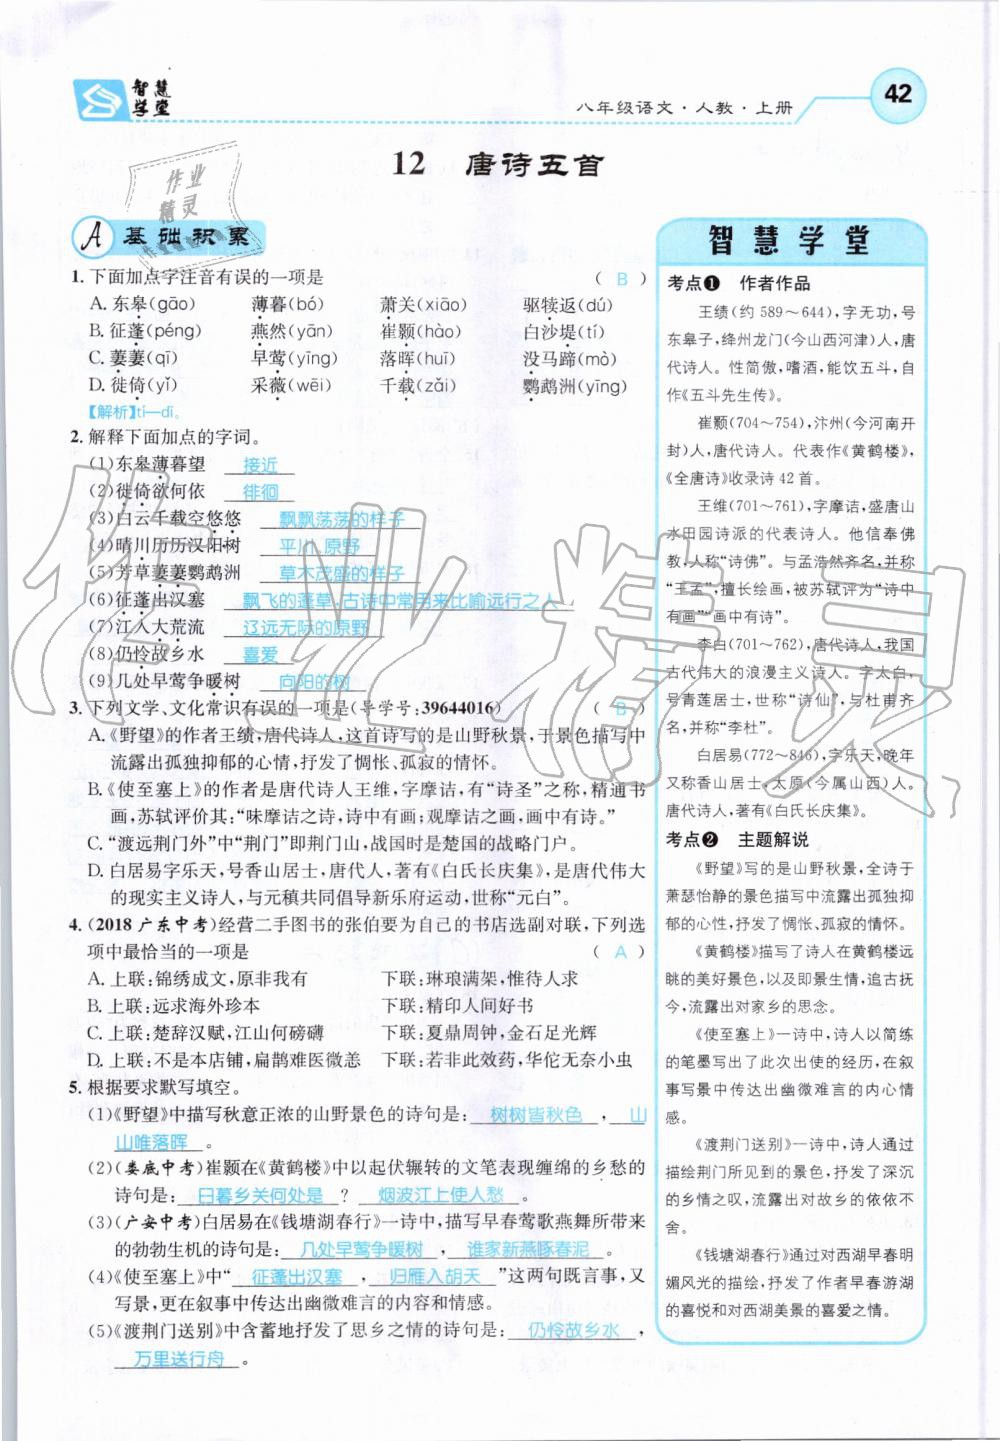 智慧
学堂
八年级语文·人教·上册
42
12 唐诗五首
A 基础积累
1. 下面加点字注音有误的一项是 ( B )
A. 东皋(gāo) 薄暮(bó) 萧关(xiāo) 驱犊返(dú)
B. 征蓬(péng) 燕然(yān) 崔颢(hào) 白沙堤(tí)
C. 萋萋(qī) 早莺(yīng) 落晖(huī) 没马蹄(mò)
D. 徙倚(yǐ) 采薇(wēi) 千载(zǎi) 鹦鹉洲(yīng)
【解析】tí—dī。
2. 解释下面加点的字词。
(1)东皋薄暮望 接近
(2)徙倚欲何依 徘徊
(3)白云千载空悠悠 飘飘荡荡的样子
(4)晴川历历汉阳树 平川、原野
(5)芳草萋萋鹦鹉洲 草木茂盛的样子
(6)征蓬出汉塞 飘飞的蓬草,古诗中常用来比喻远行之人
(7)江入大荒流 辽远无际的原野
(8)仍怜故乡水 喜爱
(9)几处早莺争暖树 向阳的树
3. 下列文学、文化常识有误的一项是(导学号:39644016) ( B )
A.《野望》的作者王绩,唐代诗人,这首诗写的是山野秋景,于景色描写中
流露出孤独抑郁的心情,抒发了惆怅、孤寂的情怀。
B.《使至塞上》的作者是唐代诗人王维,字摩诘,有“诗圣”之称,精通书
画,苏轼评价其:“味摩诘之诗,诗中有画;观摩诘之画,画中有诗。”
C.“渡远荆门外”中“荆门”即荆门山,战国时是楚国的战略门户。
D. 白居易字乐天,号香山居士,唐代人,著有《白氏长庆集》,是唐代伟大
的现实主义诗人,与元稹共同倡导新乐府运动,世称“元白”。
4. (2018 广东中考)经营二手图书的张伯要为自己的书店选副对联,下列选
项中最恰当的一项是 ( A )
A. 上联:锦绣成文,原非我有 下联:琳琅满架,惟待人求
B. 上联:远求海外珍本 下联:精印人间好书
C. 上联:楚辞汉赋,江山何磅礴 下联:夏鼎周钟,金石足光辉
D. 上联:不是本店铺,扁鹊难医微恙 下联:若非此效药,华佗无奈小虫
5. 根据要求默写填空。
(1)《野望》中描写秋意正浓的山野景色的诗句是: 树树皆秋色 , 山
山唯落晖 。
(2)(娄底中考)崔颢在《黄鹤楼》中以起伏辗转的文笔表现缠绵的乡愁的
诗句是: 日暮乡关何处是 ? 烟波江上使人愁 。
(3)(广安中考)白居易在《钱塘湖春行》一诗中,描写早春莺歌燕舞所带来
的勃勃生机的诗句是: 几处早莺争暖树 , 谁家新燕啄春泥 。
(4)《使至塞上》中“ 征蓬出汉塞 , 归雁入胡天 ”这两句既言事,又
写景,更在叙事中传达出幽微难言的内容和情感。
(5)《渡荆门送别》中含蓄地抒发了思乡之情的诗句是: 仍怜故乡水 ,
万里送行舟 。
智慧学堂
考点❶ 作者作品
王绩(约589～644),字无功,号
东皋子,绛州龙门(今山西河津)人,唐
代诗人。性简傲,嗜酒,能饮五斗,自
作《五斗先生传》。
崔颢(704～754),汴州(今河南开
封)人,唐代诗人。代表作《黄鹤楼》,
《全唐诗》收录诗42首。
王维(701～761),字摩诘,盛唐山
水田园诗派的代表诗人。他信奉佛
教,人称“诗佛”。与孟浩然齐名,并称
“王孟”,擅长绘画,被苏轼评为“诗中
有画”“画中有诗”。
李白(701～762),唐代诗人,我国
古代伟大的浪漫主义诗人。字太白,
号青莲居士,世称“诗仙”,与杜甫齐
名,并称“李杜”。
白居易(772～846),字乐天,晚年
又称香山居士,太原(今属山西)人。
唐代诗人,著有《白氏长庆集》。
考点❷ 主题解说
《野望》写的是山野秋景,全诗于
萧瑟怡静的景色描写中流露出孤独抑
郁的心性,抒发了惆怅、孤寂的情怀。
《黄鹤楼》描写了诗人在黄鹤楼远
眺的美好景色,以及即景生情,追古抚
今,流露出对家乡的思念。
《使至塞上》一诗中,诗人以简练
的笔墨写出了此次出使的经历,在叙
事写景中传达出幽微难言的内心情
感。
《渡荆门送别》一诗中,诗人通过
描绘荆门所见到的景色,抒发了深沉
的乡情之叹,流露出对故乡的依依不
舍。
《钱塘湖春行》通过对西湖早春明
媚风光的描绘,抒发了作者早春游湖
的喜悦和对西湖美景的喜爱之情。
作业
精灵
作业精灵